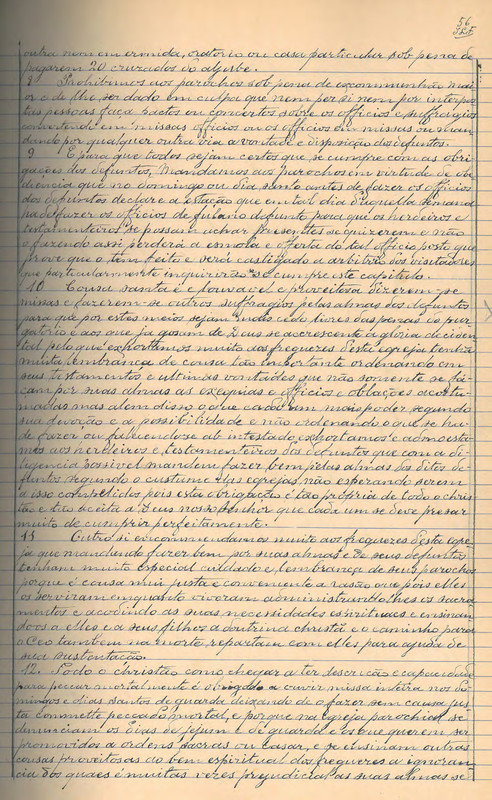 56
outra nem em ermida, oratorio ou casa particular sob pena de
pagarem 20 cruzados do aljube.
8 Prohibemos aos parochos sob pena de excommunhão mai
or e de lhe ser dado em culpa que nem por si nem por interpos
tas pessoas faça pactos ou concertos sobre os officios e suffragios
convertendo em missas officios ou os officios em missas ou mu
dando por qualquer outra via a vontade e disposição dos defuntos.
9 E para que todos sejam certos que se cumpre com as obri
gações dos defuntos, Mandamos aos parochos em virtude de obe
diencia que no domingo ou dia santo antes de fazer os officios
dos defuntos declare á estação que em tal dia d'aquella semana
ha de fazer os officios de fulano defunto para que os herdeiros e
testamenteiros se possam achar presentes se quizerem e não
o fazendo assi perderá a esmola e offerta do tal officio posto que
prove que o tem feito e será castigado a arbitrio dos visitadores
que particularmente inquirirão se se cumpre este capitulo.
10 Cousa santa é e louvavel e proveitosa dizerem-se
missas e fazerem-se outros suffragios pelas almas dos defuntos
para que por estes meios sejam mais cedo livres das penas do pur
gatorio e aos que ja gosam de Deus se accrescente a gloria acciden
tal pelo que exhortamos muito aos freguezes d'esta egreja tenham
muita lembrança de cousa tão importante ordenando em
seus testamentos e ultimas vontades que não somente se fa
çam por suas almas as exequias e officios e oblações acostu
madas mas alem disso o que cada um mais poder segundo
sua devoção e a possibilidade e não ordenando o que se ha
de fazer ou fallecendo ab intestado exhortamos e admoesta
mos aos herdeiros e testamenteiros dos defuntos que com a di
ligencia possivel mandem fazer bem pelas almas dos ditos de
funtos segundo o custume das egrejas não esperando serem
a isso compellidos pois esta obrigação é tão propria de todo o chris
tão e tão aceita a Deus nosso Senhor que cada um se deve presar
muito de cumprir perfeitamente.
11 Outro si encommendamos muito aos freguezes d'esta egre
ja que mandando fazer bem por suas almas e de seus defuntos
tenham muito especial cuidado e lembrança de seus parochos
porque é cousa mui justa e conveniente a rasão que pois elles
os serviram enquanto viveram administrando-lhes os sacra
mentos e acodindo as suas necessidades espirituaes e ensinan
do-os a elles e a seus filhos a doutrina christã e o caminho para
o Ceo tambem na morte repartam com elles para ajuda de
sua sustentação.
12. Todo o christão como chegar a ter descrição e capacidade
para peccar mortalmente é obrigado a ouvir missa inteira nos do
mingos e dias santos de guarda deixando de o fazer sem causa jus
ta commette peccado mortal, e porque na egreja parochial se
denunciam os dias de jejum e de guarda e os que querem ser
promovidos a ordens sacras ou casar, e se ensinam outras
cousas proveitosas ao bem espiritual dos freguezes a ignoran
cia dos quaes é muitas vezes prejudicial as suas almas se